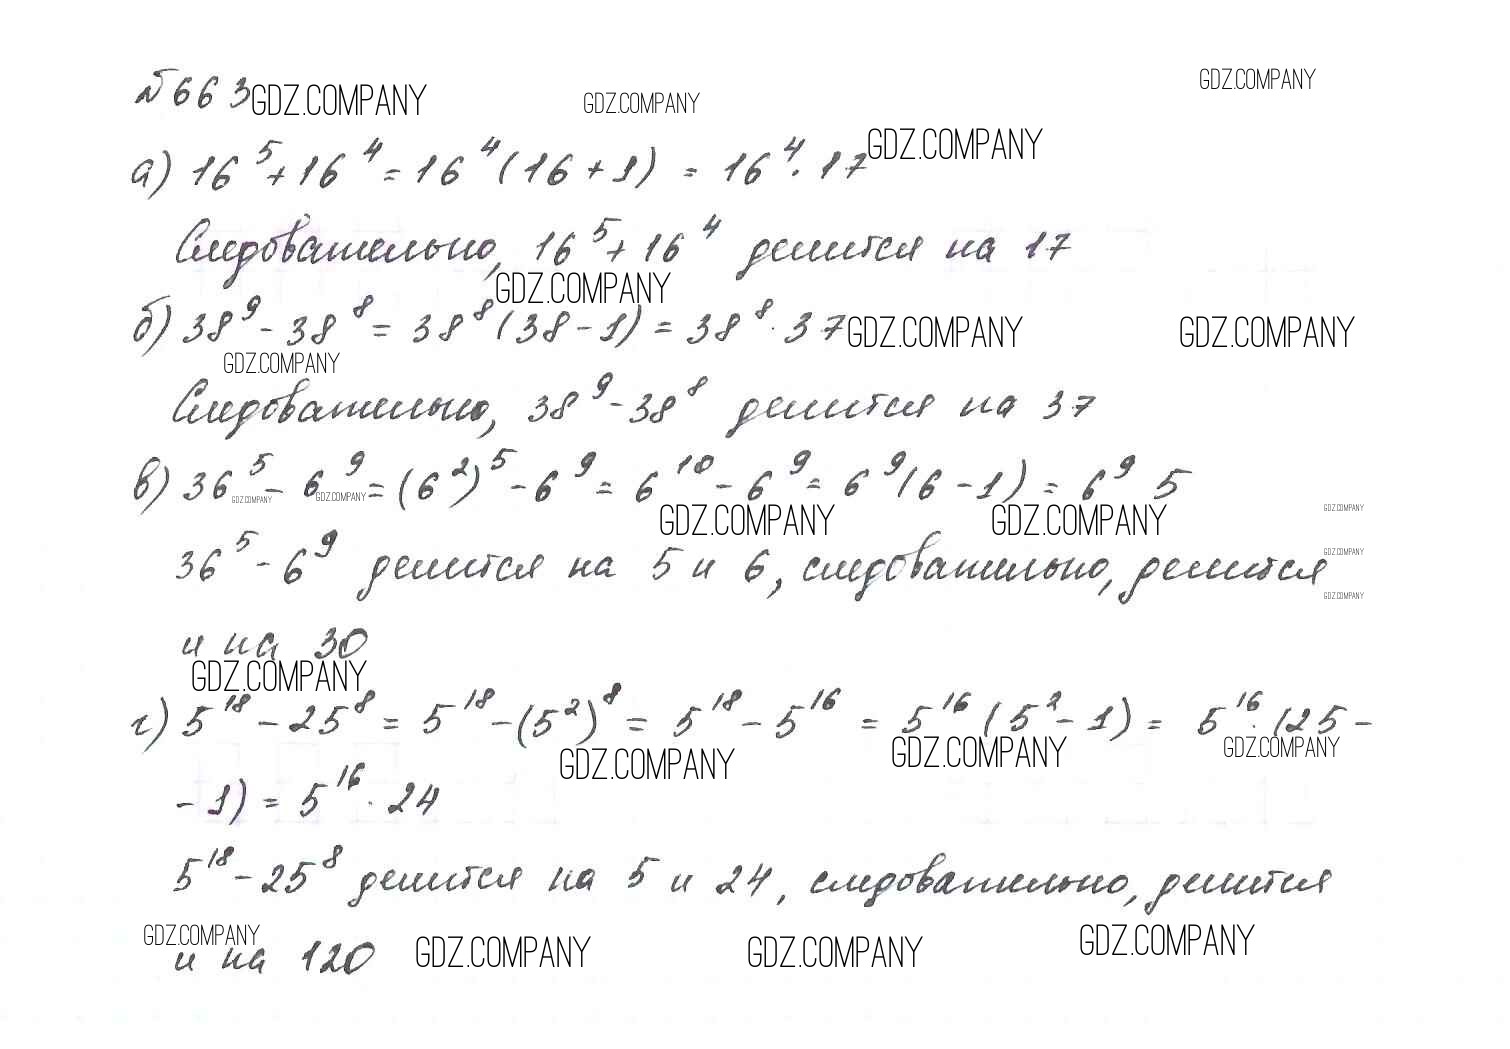 №663 GDZ.COMPANY GDZ.COMPANY GDZ.COMPANY
а) 16⁵ + 16⁴ = 16⁴ (16 + 1) = 16⁴ · 17 GDZ.COMPANY
Следовательно, 16⁵ + 16⁴ делится на 17
GDZ.COMPANY
б) 38⁹ - 38⁸ = 38⁸ (38 - 1) = 38⁸ · 37 GDZ.COMPANY GDZ.COMPANY
GDZ.COMPANY
Следовательно, 38⁹ - 38⁸ делится на 37
в) 36⁵ - 6⁹ = (6²)⁵ - 6⁹ = 6¹⁰ - 6⁹ = 6⁹ (6 - 1) = 6⁹ 5
GDZ.COMPANY GDZ.COMPANY GDZ.COMPANY GDZ.COMPANY GDZ.COMPANY
36⁵ - 6⁹ делится на 5 и 6, следовательно, делится GDZ.COMPANY
GDZ.COMPANY
и на 30
GDZ.COMPANY
г) 5¹⁸ - 25⁸ = 5¹⁸ - (5²)⁸ = 5¹⁸ - 5¹⁶ = 5¹⁶ (5² - 1) = 5¹⁶ · (25 -
GDZ.COMPANY GDZ.COMPANY GDZ.COMPANY
- 1) = 5¹⁶ · 24
5¹⁸ - 25⁸ делится на 5 и 24, следовательно, делится
GDZ.COMPANY
и на 120 GDZ.COMPANY GDZ.COMPANY GDZ.COMPANY